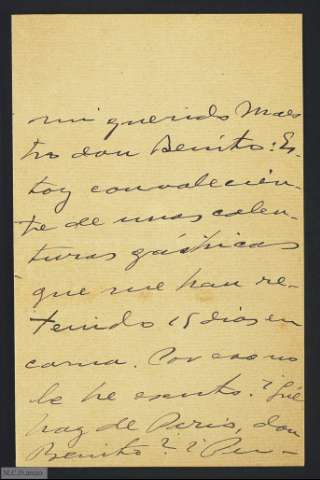 mi querido Maes-
tro don Benito: Es-
toy convalecien-
te de unas calen-
turas gástricas
que me han re-
tenido 15 dias en
cama. Por eso no
le he escrito. ¿Qué
hay de Paris, don
Benito? ¿